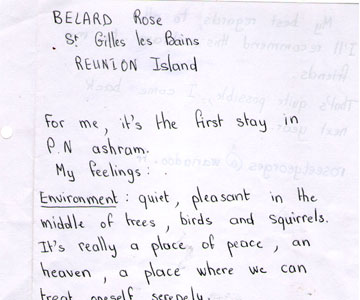 BELARD Rose
St Gilles les Bains
REUNION Island
For me, it's the first stay in
P.N ashram.
My feelings :
Environment : quiet, pleasant in the
middle of trees, birds and squirrels.
It's really a place of peace, an
heaven, a place where we can
treat oneself serenely.